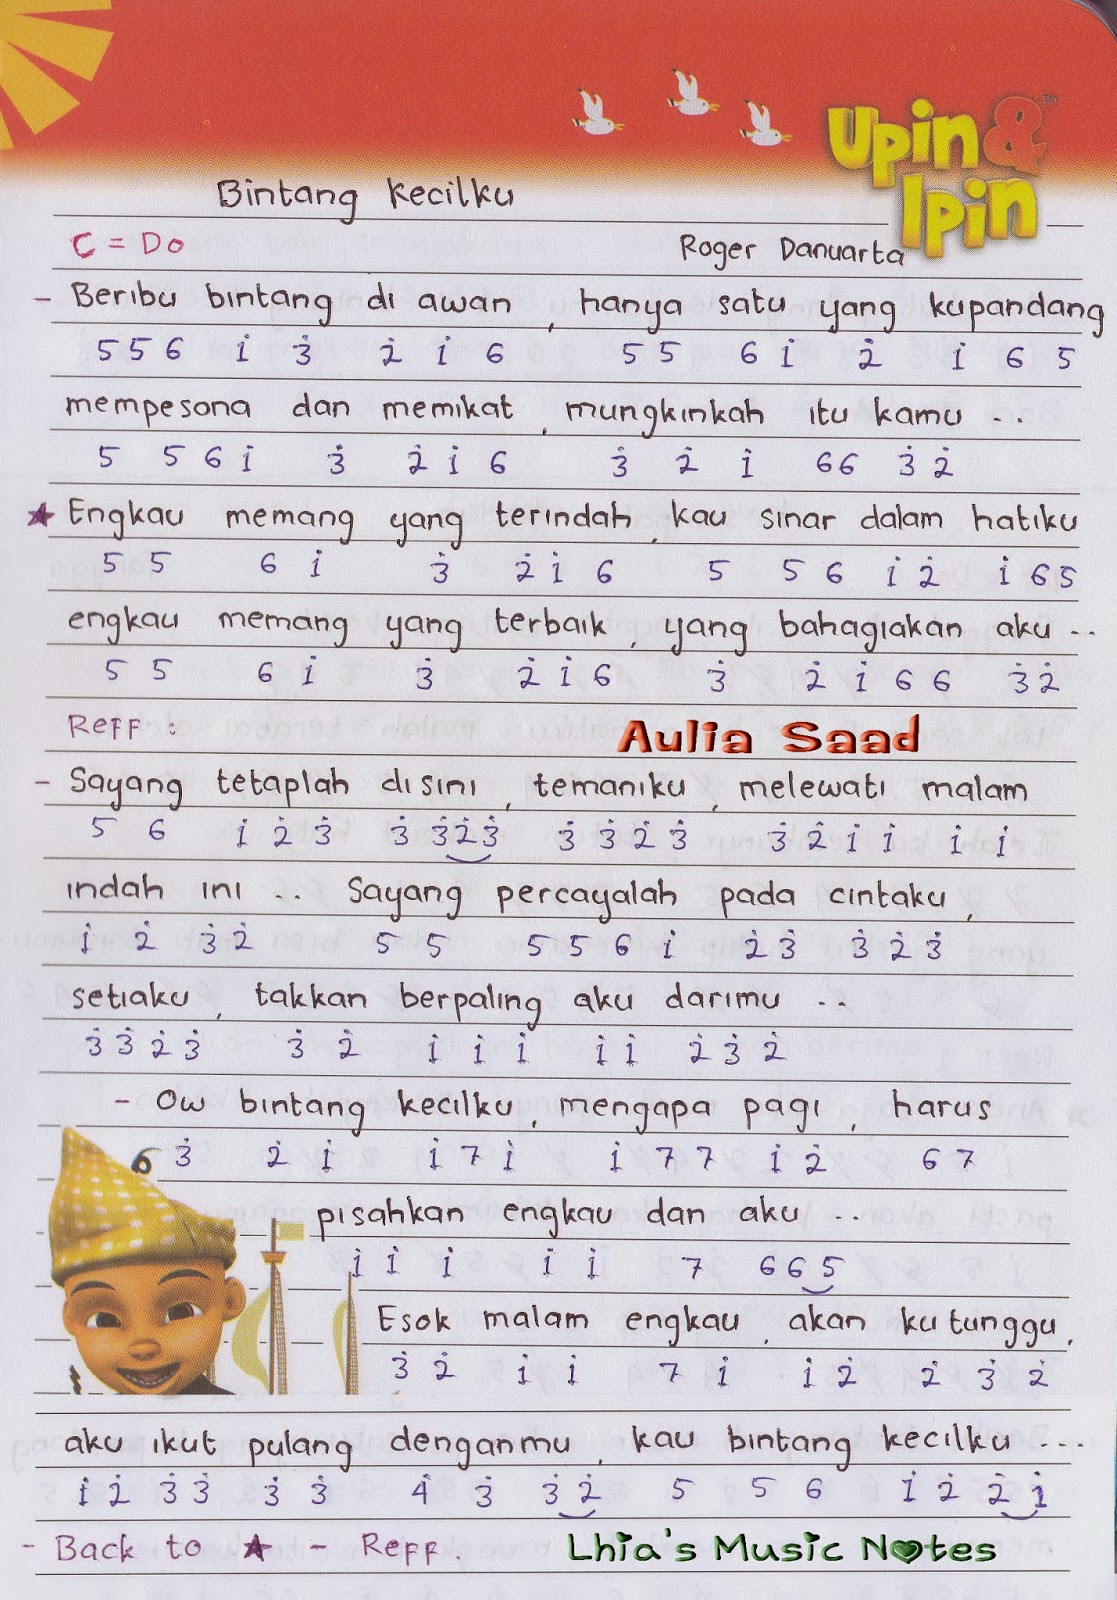 Upin & Ipin™
Bintang Kecilku
C = Do Roger Danuarta
- Beribu bintang di awan , hanya satu yang kupandang
5 5 6 i 3̇ 2̇ i 6 5 5 6 i 2̇ i 6 5
mempesona dan memikat , mungkinkah itu kamu ...
5 5 6 i 3̇ 2̇ i 6 3̇ 2̇ i 6 6 3̇ 2̇
★ Engkau memang yang terindah, kau sinar dalam hatiku
5 5 6 i 3̇ 2̇ i 6 5 5 6 i 2̇ i 6 5
engkau memang yang terbaik, yang bahagiakan aku ..
5 5 6 i 3̇ 2̇ i 6 3̇ 2̇ i 6 6 3̇ 2̇
Reff : Aulia Saad
- Sayang tetaplah disini , temaniku , melewati malam
5 6 i 2̇ 3̇ 3̇ 3̇ 2̇ 3̇ 3̇ 3̇ 2̇ 3̇ 3̇ 2̇ i i i i
indah ini ... Sayang percayalah pada cintaku ,
i 2̇ 3̇ 2̇ 5 5 5 5 6 i 2̇ 3̇ 3̇ 2̇ 3̇
setiaku , takkan berpaling aku darimu ...
3̇ 3̇ 2̇ 3̇ 3̇ 2̇ i i i i i 2̇ 3̇ 2̇
- Ow bintang kecilku , mengapa pagi , harus
6 3̇ 2̇ i i 7 i i 7 7 i 2̇ 6 7
pisahkan engkau dan aku ...
i i i i i 7 6 6 5
Esok malam engkau , akan ku tunggu ,
3̇ 2̇ i i 7 i i 2̇ 2̇ 3̇ 2̇
aku ikut pulang denganmu , kau bintang kecilku ....
i 2̇ 3̇ 3̇ 3̇ 3̇ 4̇ 3̇ 3̇ 2̇ 5 5 6 i 2̇ 2̇ i
- Back to ★ - Reff. Lhia's Music Notes